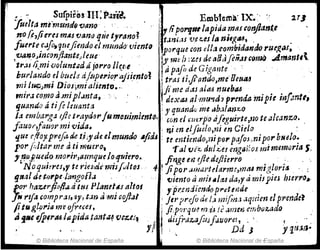 Suspiros III. Parte.
fuelta mi mundo vano
no se, si eres mas vano que tyrano?
fuerte casso, que siendo el mundo viento
vano, inconstante, leue
tras ti, mi coluntad à ferro llege
burlando el buelo à superior assiento?
mi luz, mi Dios, mi aliento.
mira como à mi planta,
quando à ti se leuanta
la embarga esse traydor su mouimiento.
fauor, fauor mi vida,
que estoy presa de ti, y de el mundo asida
por faltar me à ti muero,
y no puedo morir, aunque lo quiero.
No quieres, y te ries de mis saltos
qual de torpe langosta
por hazer fiesta à tus Planetas altos
tu risa compras, y, tan à mi costa
si tu gloria me ofreces,
à que esperas la pida tantas vezes,
y si
Emblema IX. 213
y si porque la pida mas constante
tantas vezes la niegas,
porque con ella combidando ruegas,
y me hazes de allà señas como Amante
à passo de Gigante
tras ti, si ondo, me lleuas
si me das alas nuebas
dexas al mundo prenda mi pie infante,
y quando me abalanzo
con el cuerpo à seguirte, no te alcanzo.
ni en el suelo, ni en Cielo
te entiendo, ni por passos, ni por buelo.
Tal vez dulces engaños mi memoria
finge en este destierro
si por aumentarme, mas mi gloria
viento à mis alas das, y à mis pies hierro,
y prendiendo pretende
ser preso de la misma aquien el prende
si porque en su amor embozado
disfraza sus fauores,
Dd 3 y quan-
© Biblioteca Nacional de España
© Biblioteca Nacional de España